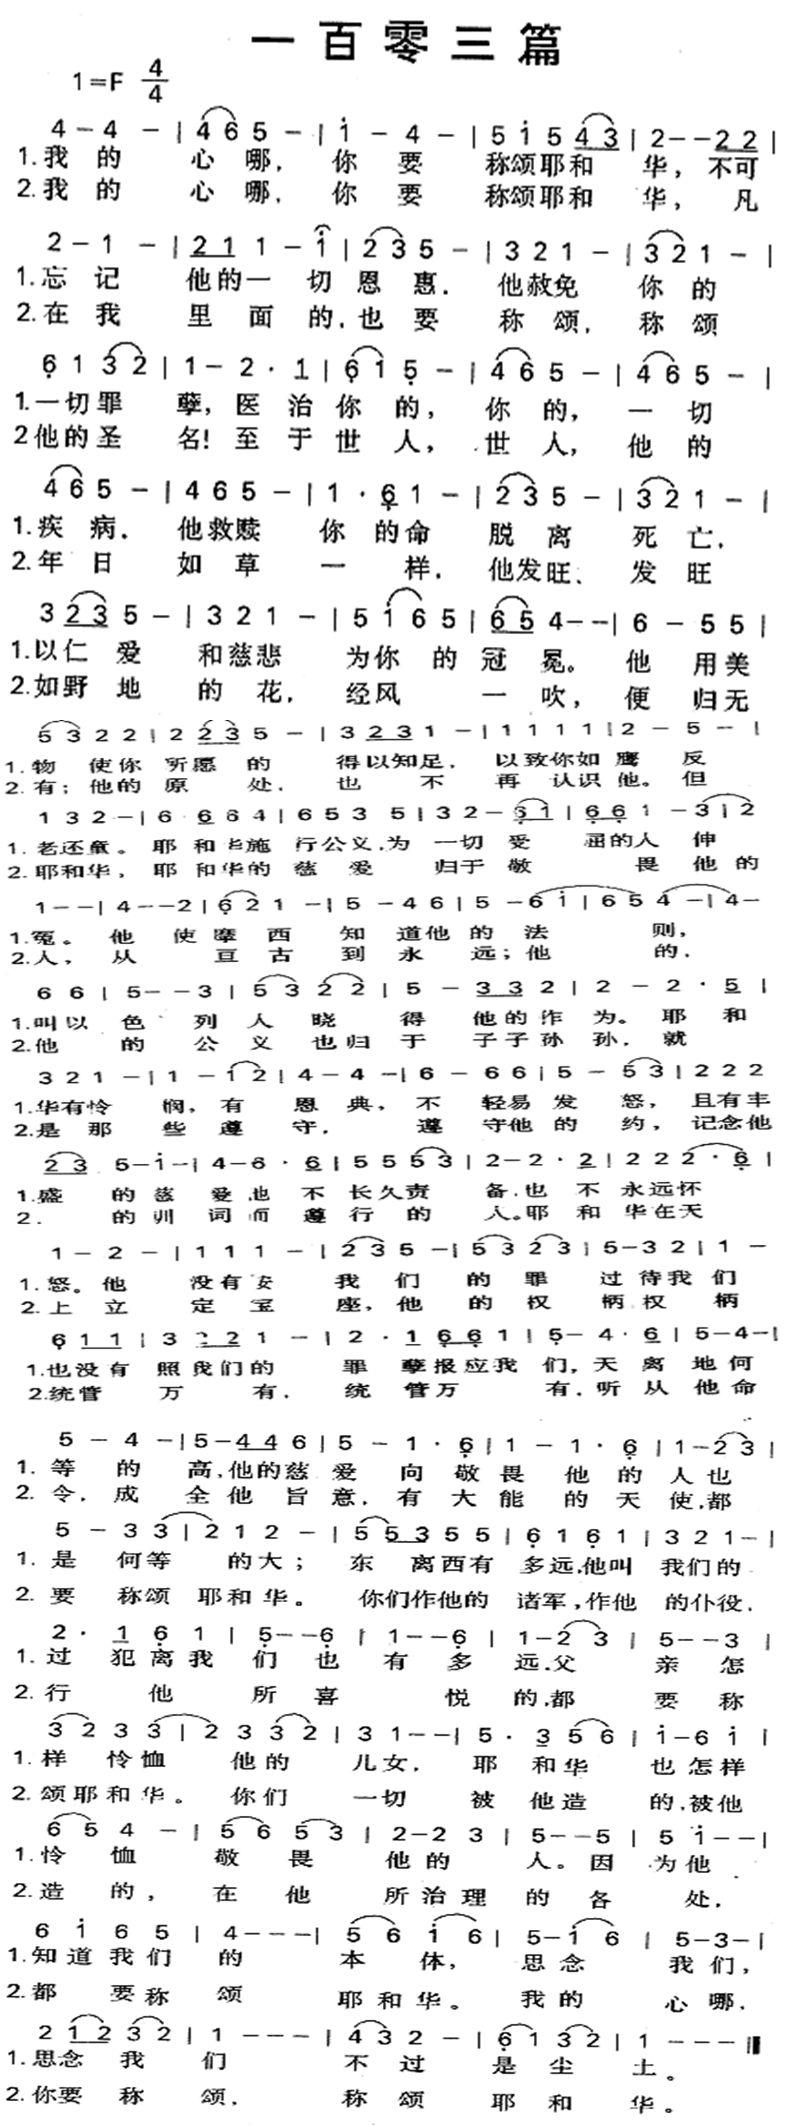 一百零三篇
1=F 4/4
4 - 4 - | 4 6 5 - | 1 - 4 - | 5 1 5 4 3 | 2 - - 2 2 |
1.我的 心哪, 你要 称颂耶和 华, 不可
2.我的 心哪, 你要 称颂耶和 华, 凡
2 - 1 - | 2 1 1 - 1 | 2 3 5 - | 3 2 1 - | 3 2 1 - |
1.忘记 他的一 切恩惠. 他赦免 你的
2.在我 里面的,也要 称颂, 称颂
6 1 3 2 | 1 - 2 · 1 | 6 1 5 - | 4 6 5 - | 4 6 5 - |
1.一切罪 孽, 医治你的, 你的, 一切
2他的圣 名! 至于世人, 世人, 他的
4 6 5 - | 4 6 5 - | 1 · 6 1 - | 2 3 5 - | 3 2 1 - |
1.疾病. 他救赎 你的命 脱离 死亡,
2.年日 如草 一样, 他发旺、 发旺
3 2 3 5 - | 3 2 1 - | 5 1 6 5 | 6 5 4 - - | 6 - 5 5 |
1.以仁爱 和慈悲 为你的冠 冕。 他用美
2.如野地 的花, 经风 一吹, 便归无
5 3 2 2 | 2 2 3 5 - | 3 2 3 1 - | 1 1 1 1 | 2 - 5 - |
1.物使你 所愿的 得以知足, 以致你如鹰 反
2.有; 他的原处, 也不 再认识他。 但
1 3 2 - | 6 · 6 6 4 | 6 5 3 5 | 3 2 - 6 1 | 6 6 1 - 3 | 2
1.老还童。 耶和华施 行公义,为 一切受 屈的人 伸
2.耶和华, 耶和华的慈爱 归于敬 畏他的
1 - - | 4 - - 2 | 6 2 1 - | 5 - 4 6 | 5 - 6 1 | 6 5 4 - | 4 -
1.冤。 他使摩西 知道他的法 则,
2.人, 从亘古 到永远; 他 的.
6 6 | 5 - - 3 | 5 3 2 2 | 5 - 3 3 2 | 2 - 2 · 5 |
1.叫以色列人晓得 他的作为。 耶和
2.他的公义也归于 子子孙孙, 就
3 2 1 - | 1 - 1 2 | 4 - 4 - | 6 - 6 6 | 5 - 5 3 | 2 2 2
1.华有怜悯, 有恩典, 不轻易发怒, 且有丰
2.是那些遵守, 遵守他的约, 记念他
2 3 5 - 1 - | 4 - 6 · 6 | 5 5 5 3 | 2 - 2 · 2 | 2 2 2 · 6 |
1.盛的慈爱.他不长久责备.也不永远怀
2. 的训词而遵行的人。耶和华在天
1 - 2 - | 1 1 1 - | 2 3 5 - | 5 3 2 3 | 5 - 3 2 | 1 -
1.怒。他 没有按 我们的罪过待我们
2.上立 定宝座, 他的权柄.权柄
6 1 1 | 3 2 2 1 - | 2 · 1 6 6 1 | 5 - 4 · 6 | 5 - 4 - |
1.也没有 照我们的 罪孽报应我们, 天离地何
2.统管万有. 统管万有, 听从他命
5 - 4 - | 5 - 4 4 6 | 5 - 1 · 6 | 1 - 1 · 6 | 1 - 2 3 |
1. 等的高, 他的慈爱向敬畏他的人也
2. 令, 成全他旨意, 有大能的天使,都
5 - 3 3 | 2 1 2 - | 5 5 3 5 5 | 6 1 6 1 | 3 2 1 - |
1. 是何等的大; 东离西有多远,他叫我们的
2. 要称颂耶和华。 你们作他的诸军,作他的仆役,
2 · 1 6 1 | 5 - - 6 | 1 - - 6 | 1 - 2 3 | 5 - - 3 |
1. 过犯离我们也有多远.父亲怎
2. 行他所喜悦的,都要称
3 2 3 3 | 2 3 3 2 | 3 1 - - | 5 · 3 5 6 | 1 - 6 1 |
1. 样怜恤他的儿女, 耶和华也怎样
2. 颂耶和华。 你们一切被他造的,被他
6 5 4 - | 5 6 5 3 | 2 - 2 3 | 5 - - 5 | 5 1 - - |
1.怜恤敬畏他的人。因为他
2.造的, 在他所治理的各处,
6 1 6 5 | 4 - - - | 5 6 1 6 | 5 - 1 6 | 5 - 3 - |
1.知道我们的本体, 思念我们,
2.都要称颂耶和华。 我的心哪,
2 1 2 3 2 | 1 - - - | 4 3 2 - | 6 1 3 2 | 1 - - - ||
1.思念我们 不过是尘土。
2.你要称颂, 称颂耶和华。